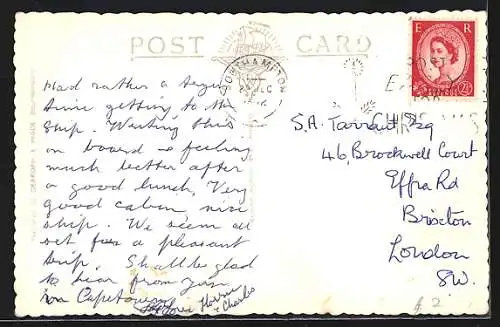 POST CARD
SOUTHAMPTON
E R
2½
POST
E
CHRISTMAS
Had rather a
time getting to the
ship. Writing this
on board & feeling
much better after
a good lunch, Very
good cabin, nice
ship. We seem all
set for a pleasant
trip. Shall be glad
to hear from you
in Capetown.
Love Horrie
& Charlie
S.A. Tarrant Esq
46, Brockwell Court
Effra Rd
Brixton
London
S.W.
£2